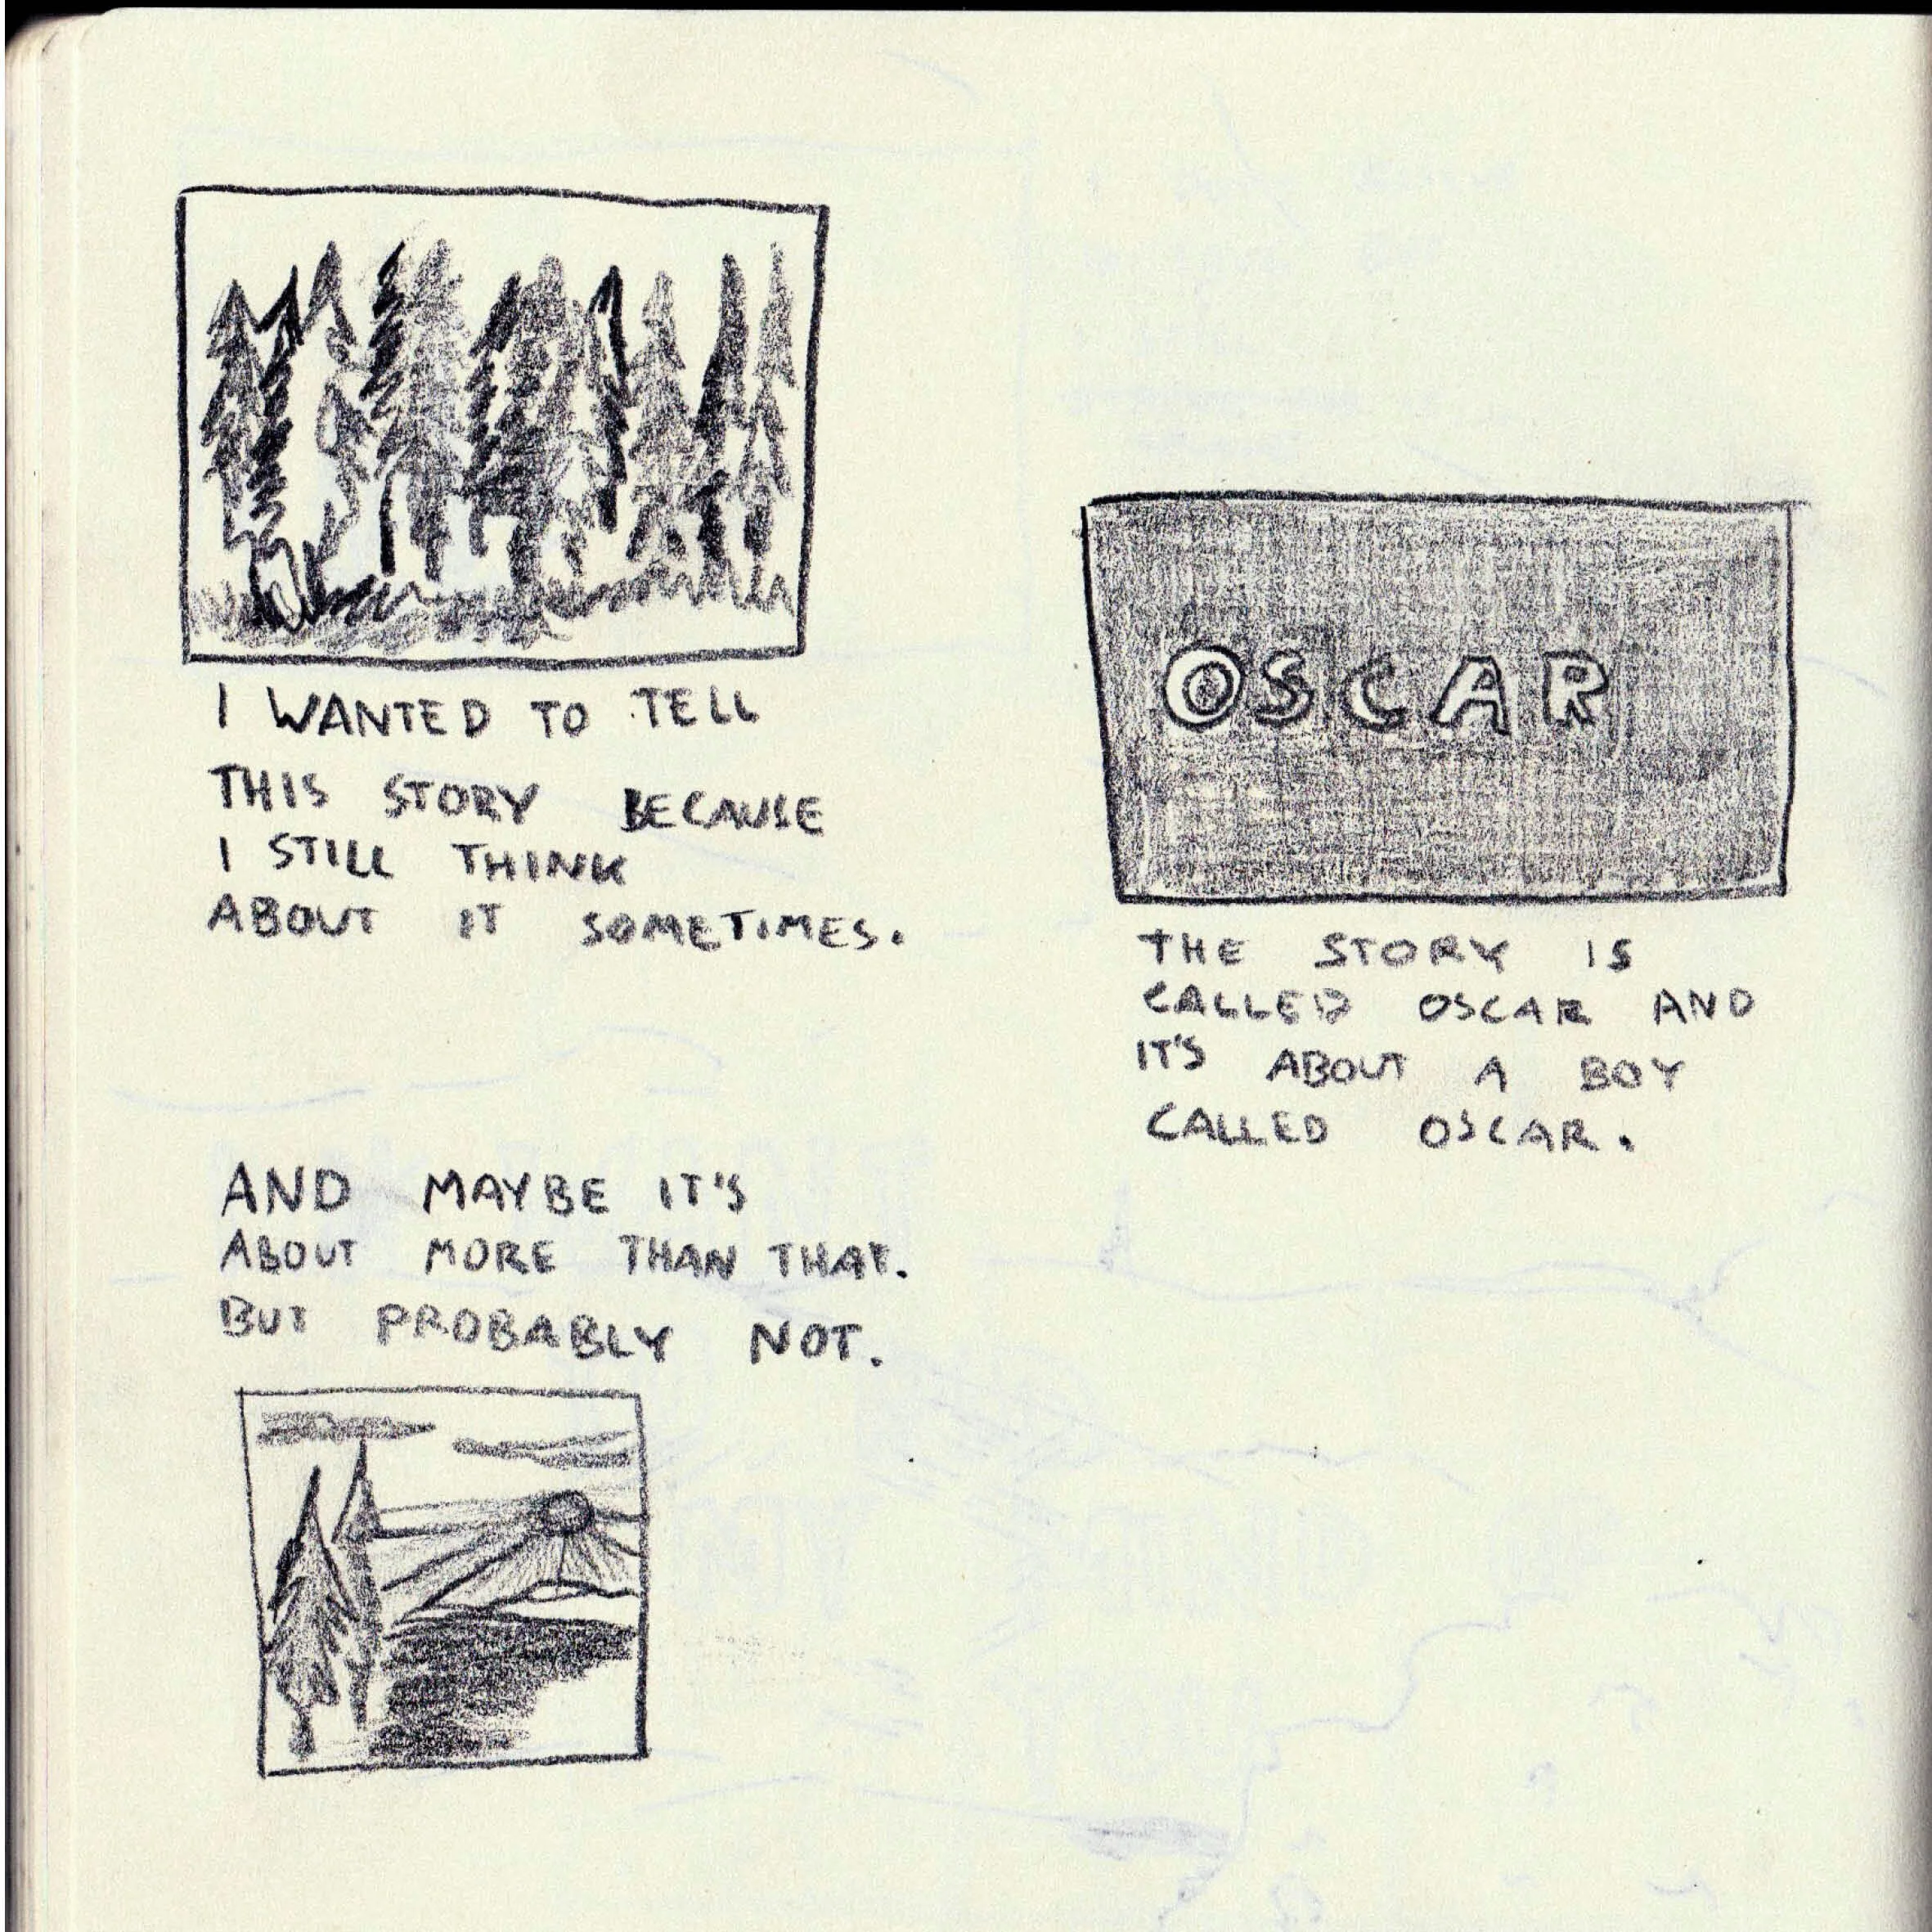 I WANTED TO TELL
THIS STORY BECAUSE
I STILL THINK
ABOUT IT SOMETIMES.
OSCAR
THE STORY IS
CALLED OSCAR AND
IT'S ABOUT A BOY
CALLED OSCAR.
AND MAYBE IT'S
ABOUT MORE THAN THAT.
BUT PROBABLY NOT.